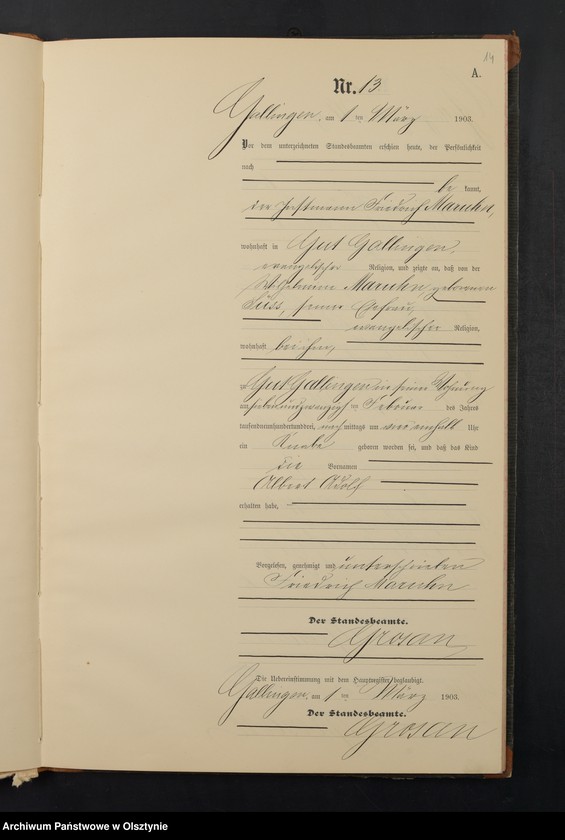 14
A.
Nr. 13
Gallingen, am 1 ten März 1903.
Vor dem unterzeichneten Standesbeamten erschien heute, der Persönlichkeit
nach
be kannt,
der Instmann Friedrich Maruhn,
wohnhaft in Gut Gallingen,
evangelischer Religion, und zeigte an, daß von der
Wilhelmine Maruhn geborenen
Süss, seiner Ehefrau,
evangelischer Religion,
wohnhaft bei ihm,
zu Gut Gallingen in seiner Wohnung
am siebenundzwanzigsten Februar des Jahres
tausendneunhundertunddrei, nachmittags um Uhr
ein Knabe geboren worden sei, und daß das Kind
die Vornamen
Albert Adolf
erhalten habe,
Vorgelesen, genehmigt und unterschrieben
Friedrich Maruhn
Der Standesbeamte.
Grosan
Die Uebereinstimmung mit dem Hauptregister beglaubigt.
Gallingen, am 1 ten März 1903.
Der Standesbeamte.
Grosan
Archiwum Państwowe w Olsztynie